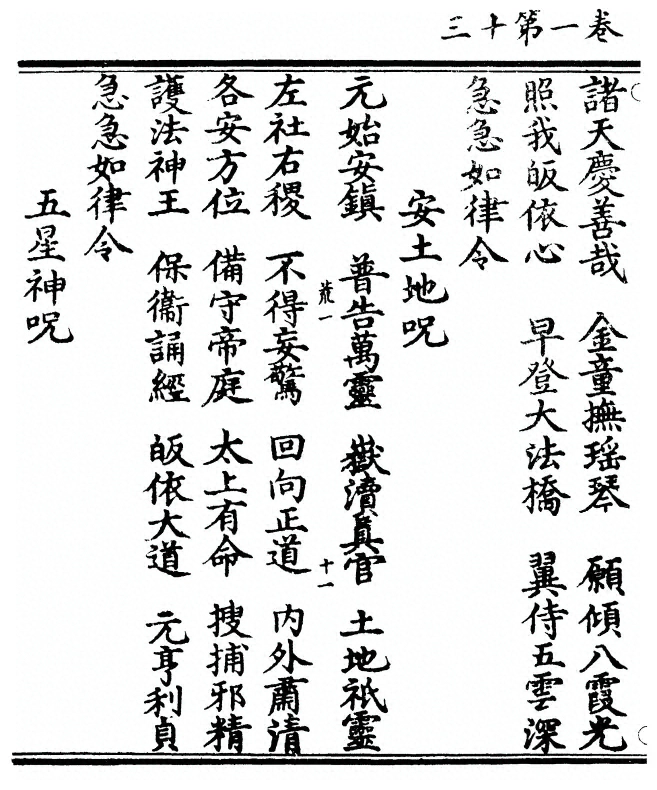 三十第一卷
諸天慶善哉 金童撫瑶琴 願傾八霞光
照我皈依心 早登大法橋 翼侍五雲深
急急如律令
安土地呪
元始安鎮 普告萬靈 嶽瀆真官 土地祇靈
荒一
十一
左社右稷 不得妄驚 回向正道 内外肅清
各安方位 備守帝庭 太上有命 搜捕邪精
護法神王 保衞誦經 皈依大道 元亨利貞
急急如律令
五星神呪